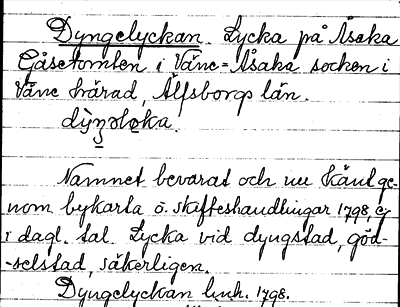 Dyngelyckan. Lycka på Åsaka
Gåsetomten i Väne-Åsaka socken i
Väne härad, Älfsborgs län.
Namnet bevarat och nu känt ge-
nom bykarta o. skifteshandlingar 1798, ej
i dagl. tal. Lycka vid dyngstad, göd-
-selstad, säkerligen.
Dyngelyckan lmh. 1798.